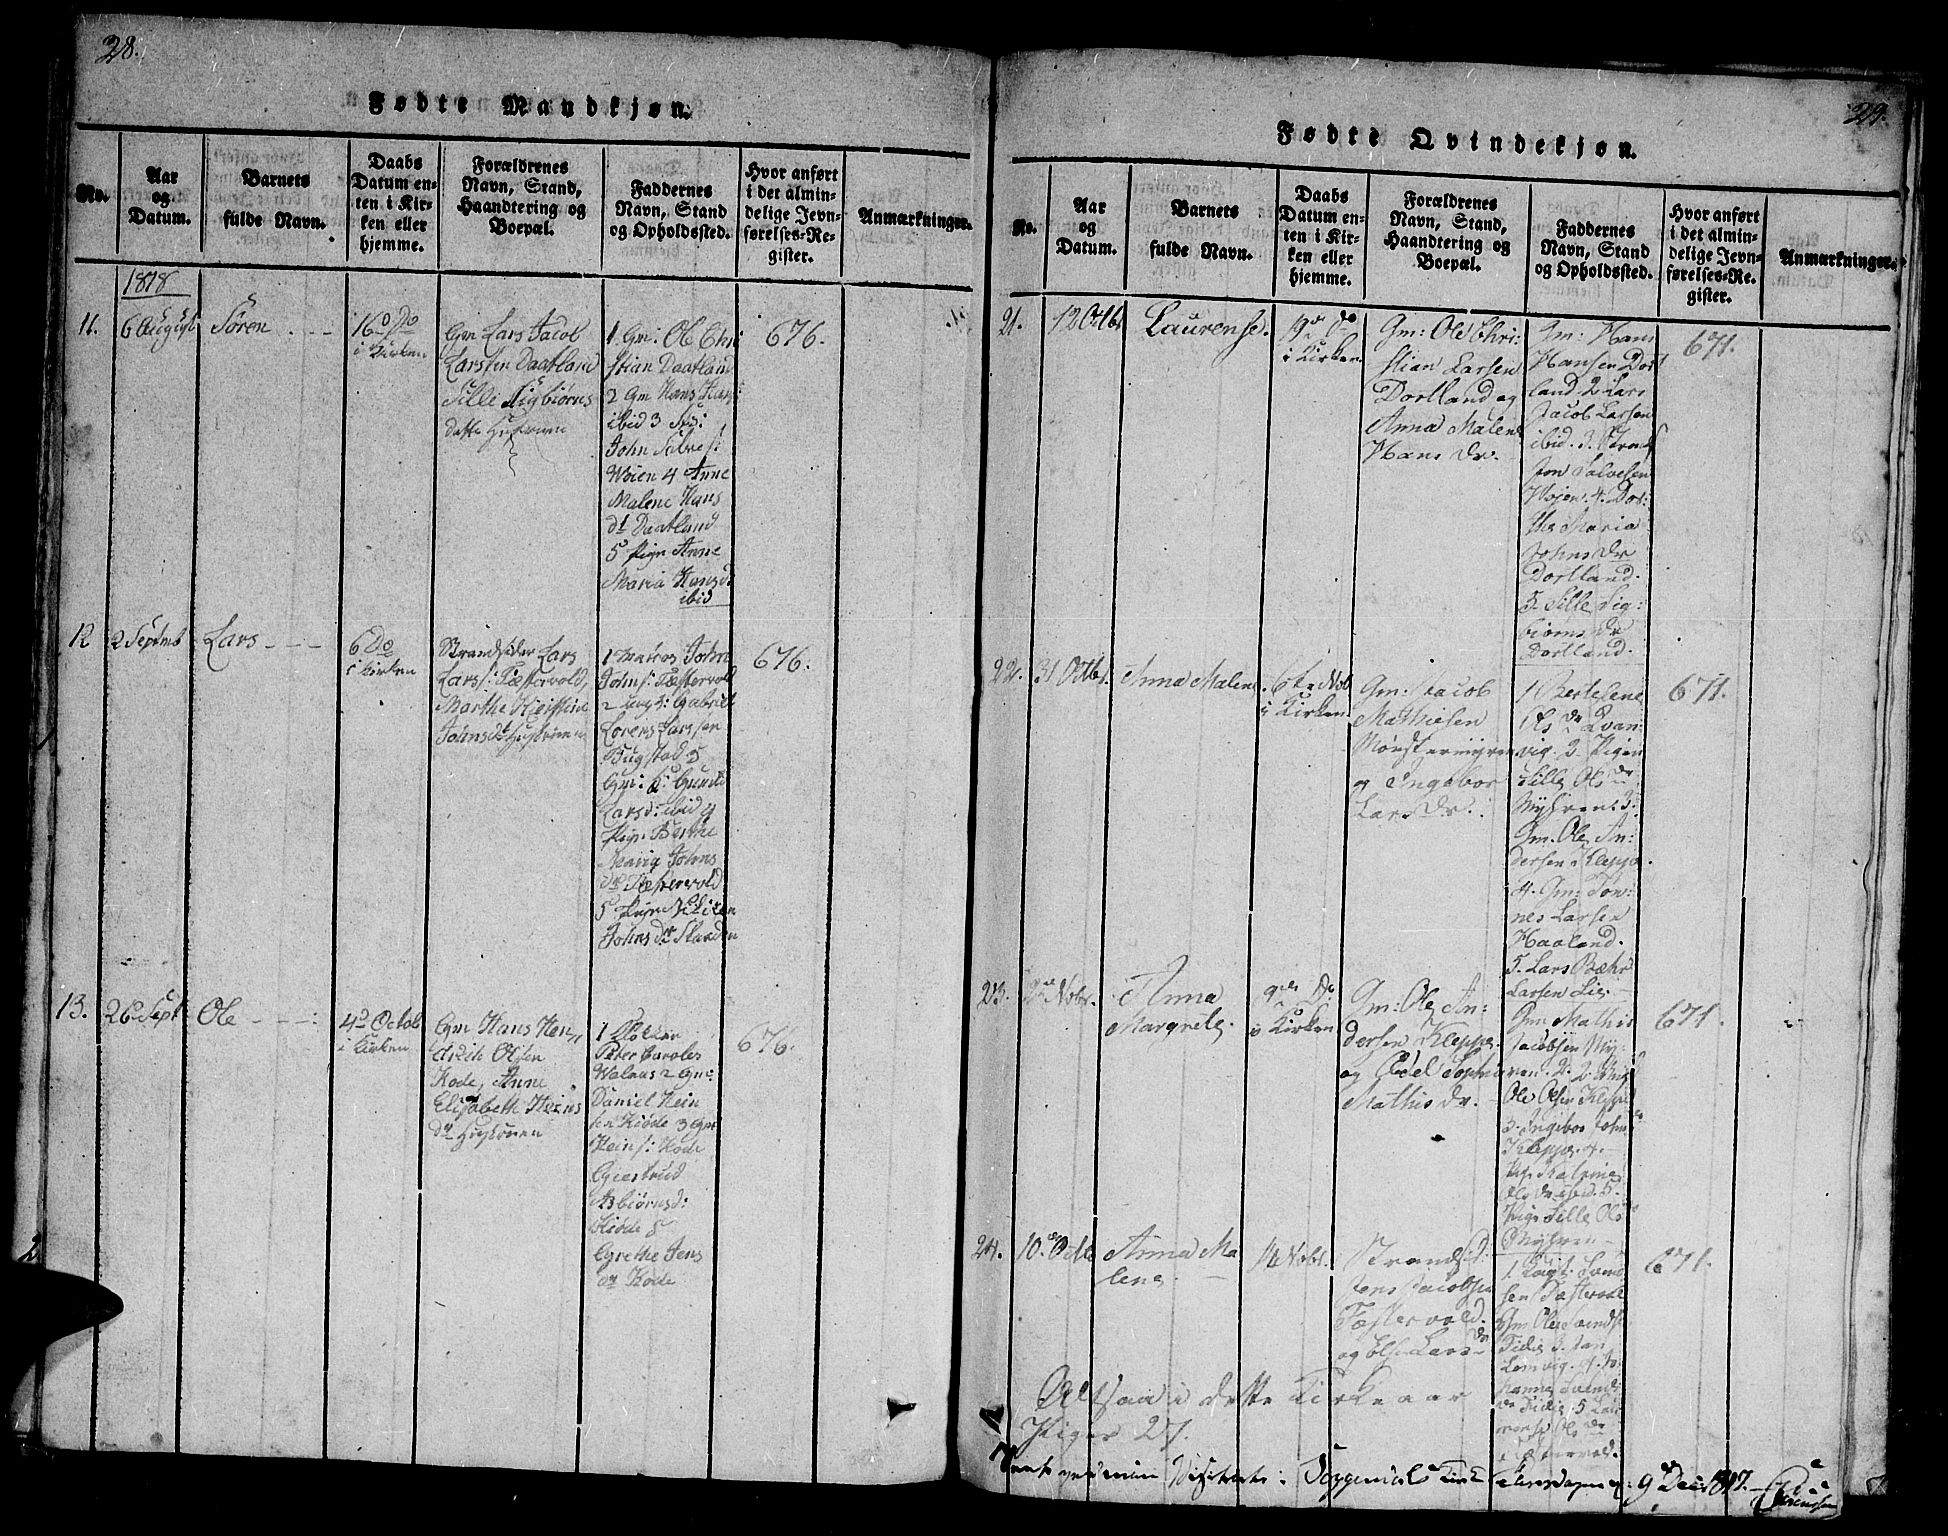 28.
Fødte Mandkjøn.
No.
Aar
og
Datum.
Barnets
fulde Navn.
Daabs
Datum en-
ten i Kir-
ken eller
hjemme.
Forældrenes
Navn, Stand,
Haandtering og
Boepæl.
Faddernes
Navn, Stand
og Opholdssted.
Hvor anført
i det almin-
delige Jevn-
førelses-Re-
gister.
Anmærkninger.
1818
11.
6 August
Søren
16 Do
i Kirken
Gm Lars Jacob
Larsen Daatland
Sille Sigbiørns
datter Hustruen
1 Gm. Ol Chri
stian Daatland
2 Gm Hans Hans:
ibid 3
John Salves:
Woien 4 Anne
Malene Hans
dt Daatland
5 Pige Anne
Maria Hansd:
ibid
676.
12
2 Septemb
Lars
6 Do
i Kirken
Strandsider Lars
Lars: Fæstervold,
Marthe
Johnsdt Hustruen
1 Matros John
Johns: Fæstervold
2 Ung: Gabriel
Lorens Larsen
Bugstad 3
Gm: K: Gunild
Larsd: ibid 4
Pige Berthe
Maria Johns
dr Fæstervold
5 Pige
Johns dr
676.
13.
26 Sept
Ole
4 Octob
i Kirken
Gm Hans Hen
drich Olsen
Kode, Anne
Elisabeth Heins
dr Hustruen
1 Klokker
Peter Caroles
Walaas 2 Gm:
Daniel Hein
sen Kiøde 3 Gm
Heins: Kode
Giertrud
Asbiørnsd:
Kiøde 5
Grethe Jens
dr Kode
676.
29.
Fødte Qvindekjøn.
No.
Aar
og
Datum.
Barnets
fulde Navn.
Daabs
Datum en-
ten i Kir-
ken eller
hjemme.
Forældrenes
Navn, Stand,
Haandtering og
Boepæl.
Faddernes
Navn, Stand
og Opholdssted.
Hvor anført
i det almin-
delige Jevn-
førelses-Re-
gister.
Anmærkninger.
21.
12 Octbr
Laurense.
19de do
i Kirken
Gm: Ole Chri:
stian Larsen
Dortland og
Anna Malene
Hans Dr.
Gm: Hans
Hansen Dort
land. 2. Lars
Jacob Larsen
ibid. 3. Strands
Jon Salvesen
Wojen. 4. Dor:
the Maria
Johns Dr
Dortland.
5. Sille Sig:
biørns Dr
Dortland.
671.
22.
31 Octbr.
Anna Malene
6te Nob
i Kirken
Gm: Jacob
Mathiesen
Mønstermyren
og Ingebor
Lars Dr.
1. Bertelene
Ols Dr Qvan-
vig. 2. Pigen
Sille Ols Dr
Myhren. 3.
Gm. Ole An:
dersen Kleppe.
4. Gm: Ton:
nes Larsen
Haaland.
5. Lars Bæhr
Larsen Lie,
671.
23.
2de Nobr.
Anna
Margrete.
9de Do
i Kirken
Gm: Ole An:
dersen Kleppe
og Edel Sophia
Mathis Dr.
Gm Mathis
Jacobsen My:
ren. 2.
Ole Olsen Kleppe
3. Ingebor Johns
Kleppe. 4.
Pige
Ols Dr ibid. 5.
Pige Sille Ols
Myhren
671.
24.
10de Octb
Anna Ma
lene.
16 Nobr.
Strands:
Jens Jacobsen
Fæstervold.
og Else Lars Dr
1.
sen Fæstervold
Gm Ole Svends
Tidie 3. Jan
Lomvig. 4. Jo
hanne Svends
Dr Tidie 5 Lau
rense Ols Dr
Fæstervold.
671.
Altsaa i dette Kirkeaar
Piger 27.
9 Decbr 1817.